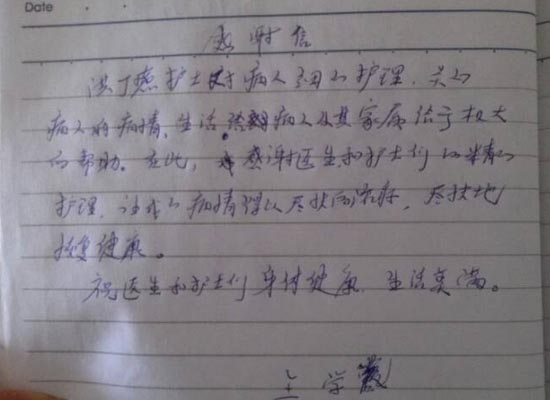 Date
感谢信
洪丁燕护士对病人细心护理.关心
病人的病情,生活.给病人及其家属给予极大
的帮助。在此,感谢医生和护士们的精心
护理,让我的病情得以尽快的治好,尽快地
恢复健康。
祝医生和护士们身体健康.生活美满。
王学